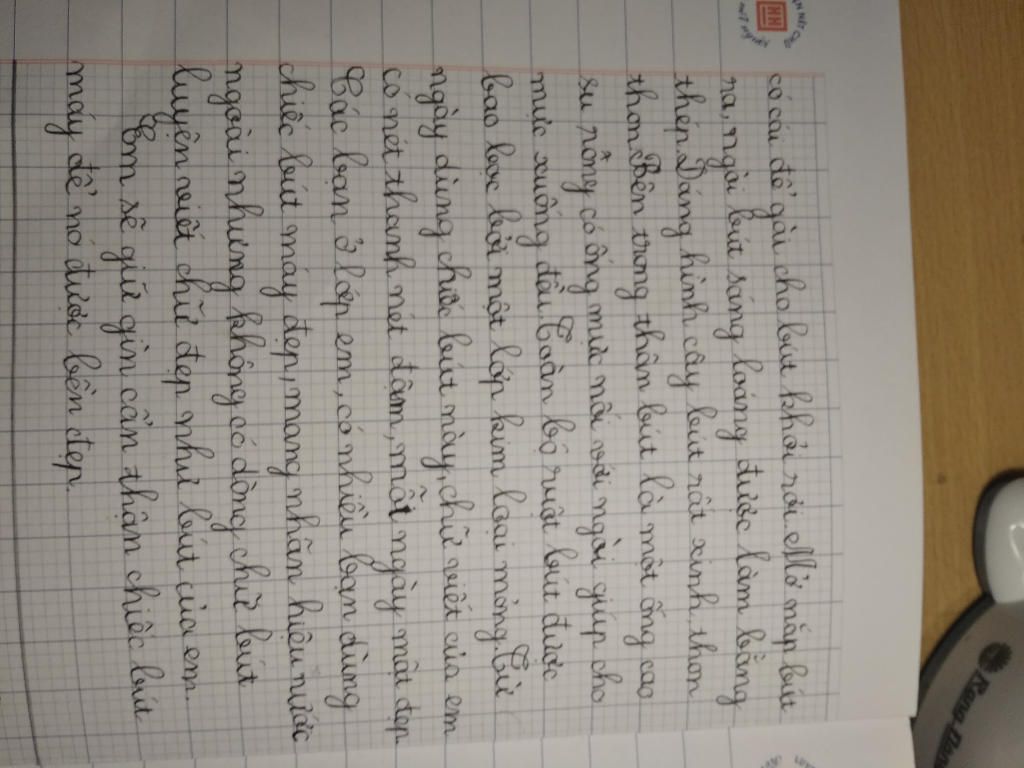 có cái để gài cho bút khỏi rơi. Mở nắp bút
ra, ngòi bút sáng loáng được làm bằng
thép. Dáng hình cây bút rất xinh, thon
thon. Bên trong thân bút là một ống cao
su rỗng có ống mực nối với ngòi giúp cho
mực xuống đều. Toàn bộ ruột bút được
bao bọc bởi một lớp kim loại mỏng. Từ
ngày dùng chiếc bút này, chữ viết của em
có nét thanh nét đậm, mỗi ngày một đẹp
Các bạn ở lớp em, có nhiều bạn dùng
chiếc bút máy đẹp, mang nhãn hiệu nước
ngoài nhưng không có dòng chữ bút
luyện viết chữ đẹp như bút của em.
Em sẽ giữ gìn cẩn thận chiếc bút
máy để nó được bền đẹp.
HH